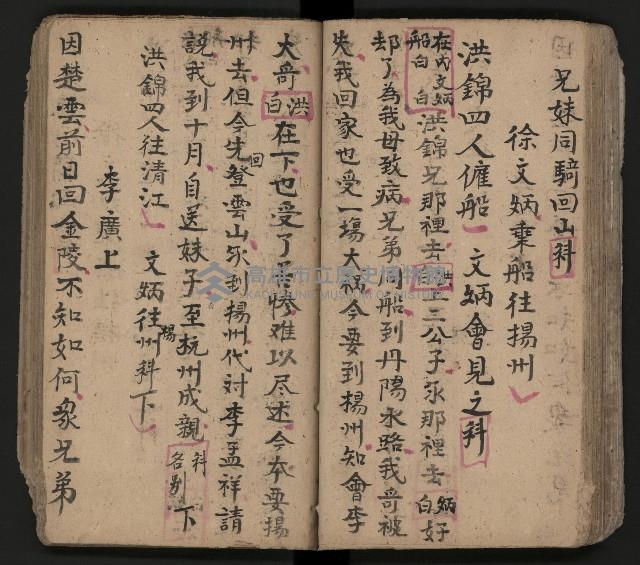 兄妹同騎回山科
徐文炳乘船往揚州
洪錦四人僱船 文炳會見之科
在內文炳船白白洪錦兄那裡去洪白三公子永那裡去炳白好
却了為我母致病兄弟同船到丹陽水路我哥被
失我回家也受一場大禍今要到揚州知會李
大哥洪白在下也受了苦慘难以尽述今本要揚
州去但今先登雲山永到揚州代对李孟祥請
回
說我到十月自送妹子至杭州成親科各別下
洪錦四人往清江 文炳往揚州科下
李廣上
因楚雲前日回金陵不知如何眾兄弟
高雄市立歷史博物館
KAOHSIUNG MUSEUM OF HISTORY